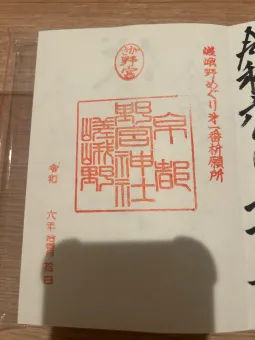 嵯峨野めぐり第一番祈願所
野宮
京都
野宮神社
嵯峨野
令和 六年
令和六